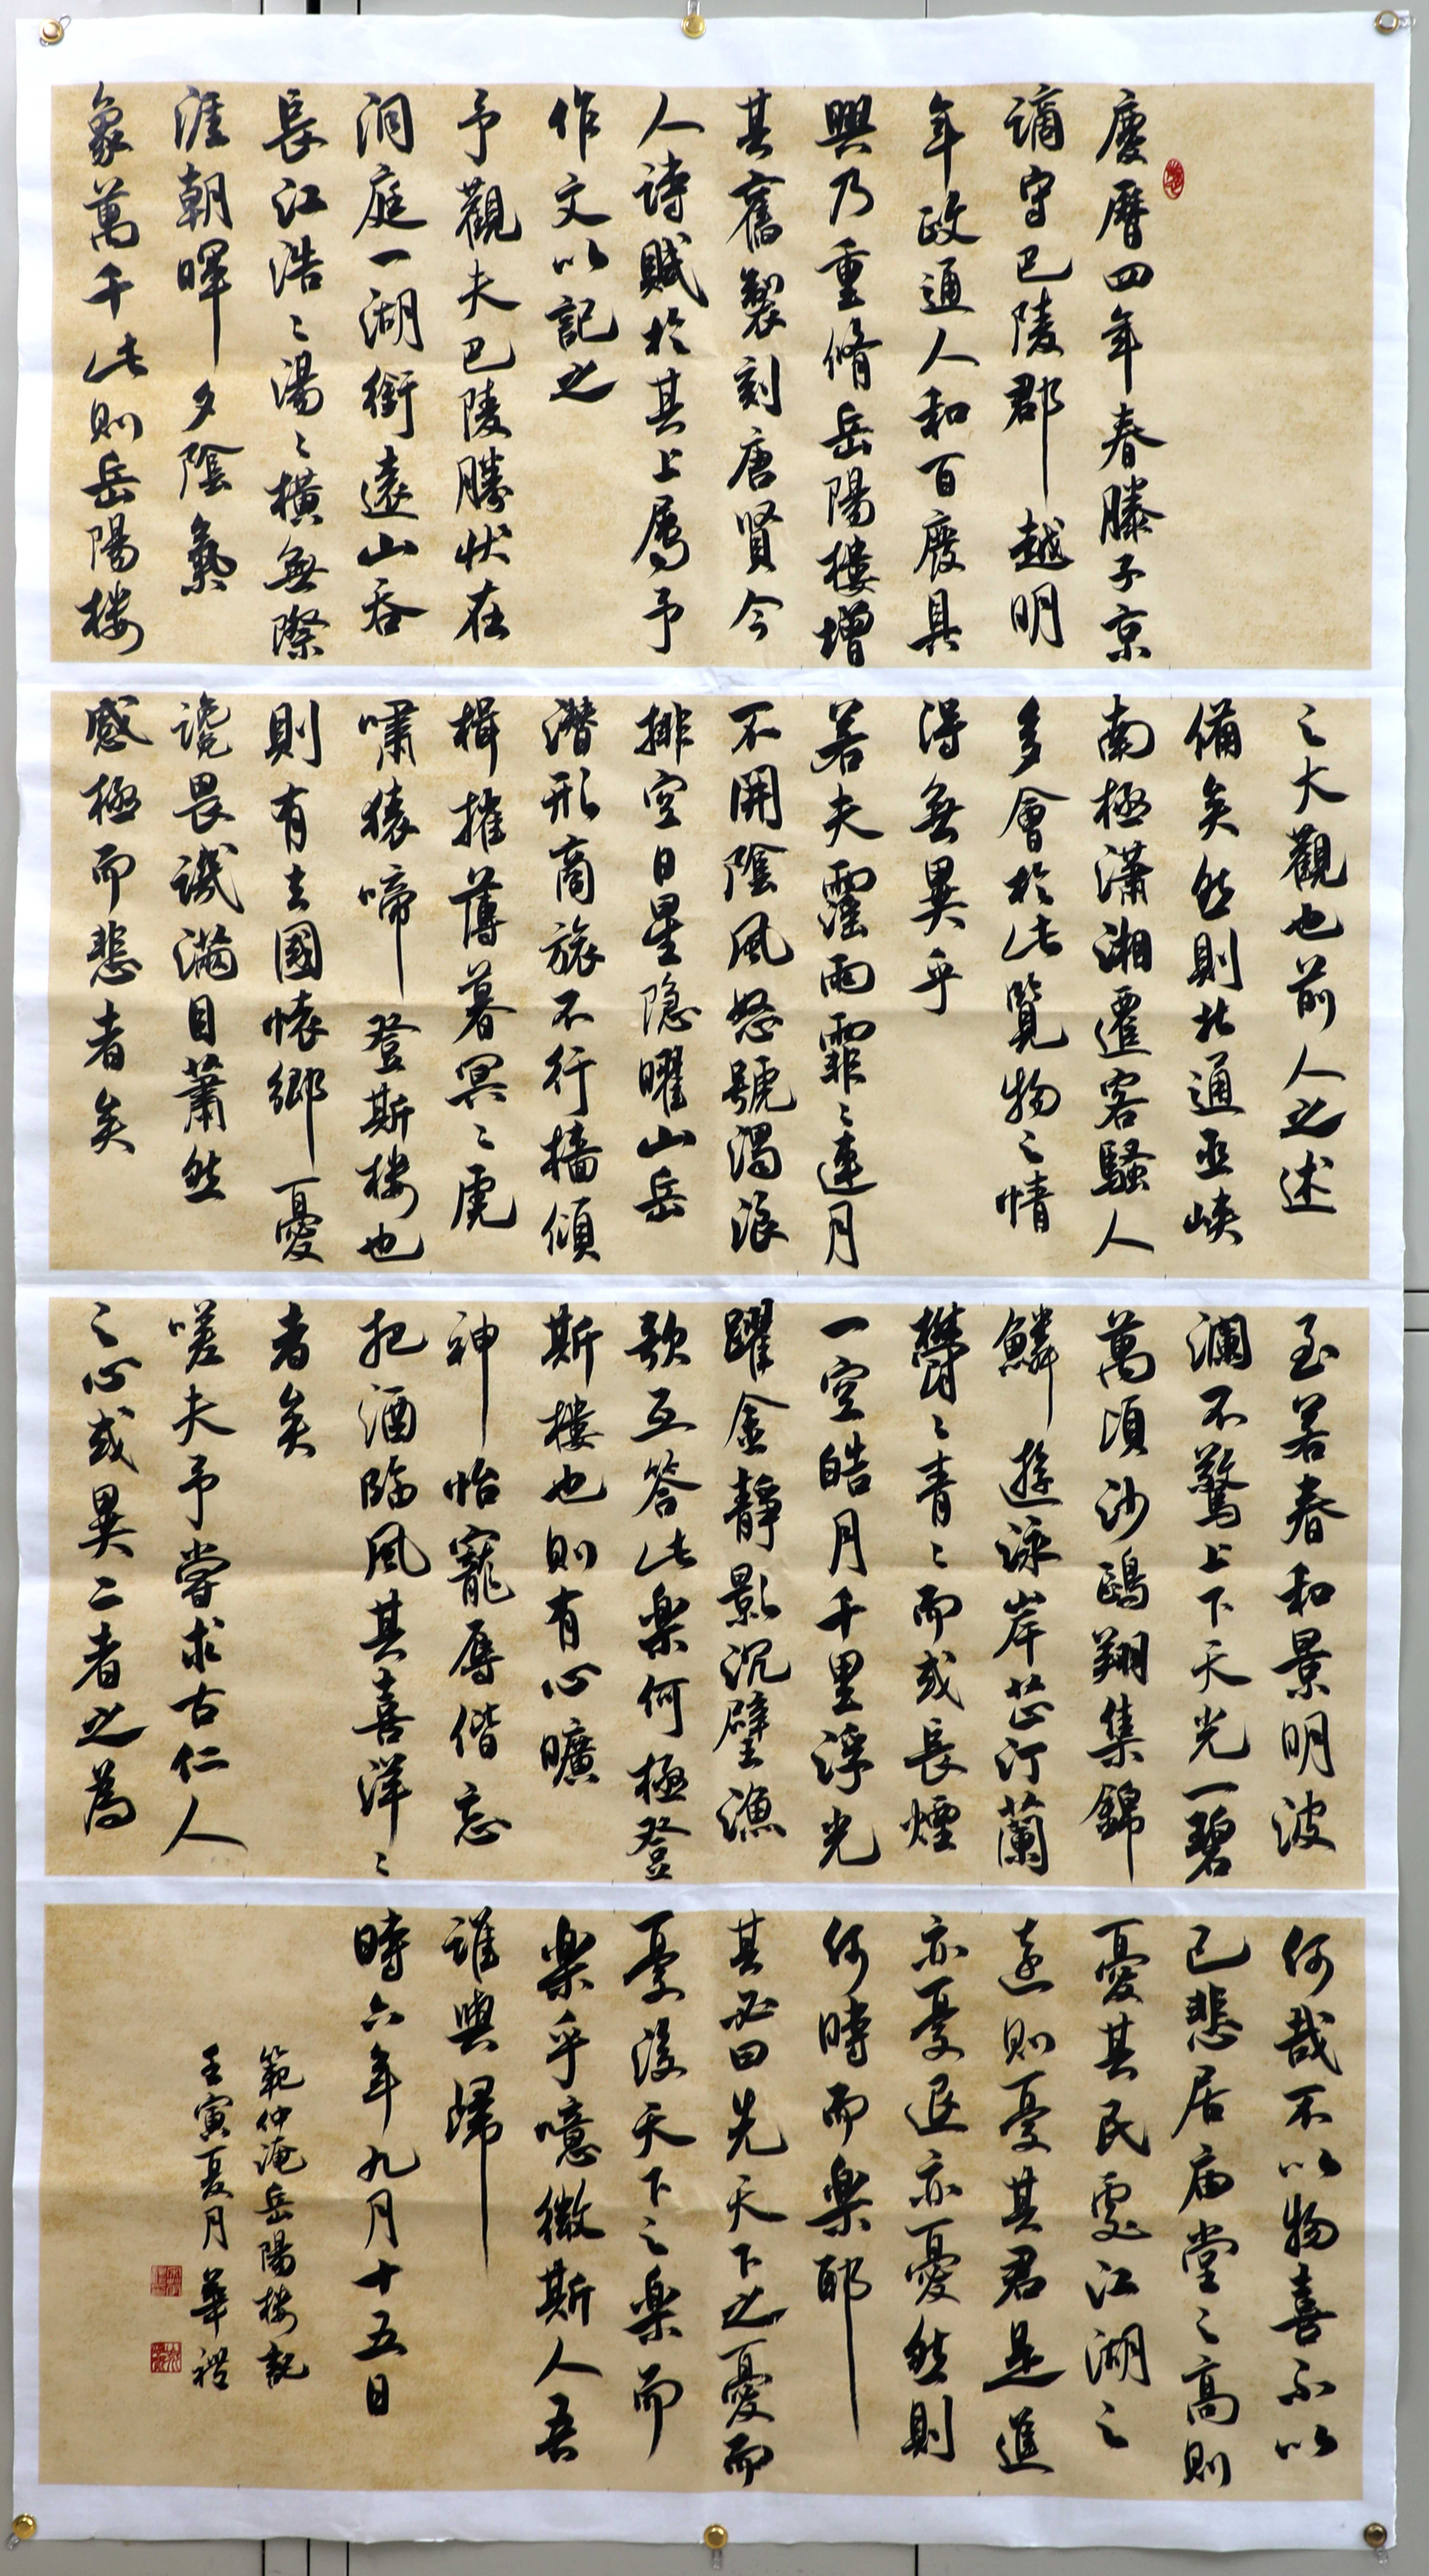 慶曆四年春滕子京
謫守巴陵郡越明
年政通人和百廢具
興乃重脩岳陽樓增
其舊製刻唐賢今
人詩賦於其上属予
作文以記之
予觀夫巴陵勝状在
洞庭一湖銜遠山吞
長江浩〻湯〻橫無際
涯朝暉夕陰氣
象萬千此則岳陽楼
之大觀也前人之述
備矣然則北通巫峡
南極瀟湘遷客騷人
多會於此覽物之情
得無異乎
若夫霪雨霏〻連月
不開陰風怒號濁浪
排空日星隐曜山岳
潛形商旅不行檣傾
楫摧薄暮冥〻虎
嘯猿啼登斯楼也
則有去國懐鄉憂
讒畏譏滿目蕭然
感極而悲者矣
至若春和景明波
瀾不驚上下天光一碧
萬頃沙鷗翔集錦
鱗游泳岸芷汀蘭
欝〻青〻而或長煙
一空皓月千里浮光
躍金靜影沉璧漁
歌互答此楽何極登
斯樓也則有心曠
神怡寵辱偕忘
把酒臨風其喜洋〻
者矣
嗟夫予嘗求古仁人
之心或異二者之為
何哉不以物喜不以
己悲居庙堂之高則
憂其民處江湖之
遠則憂其君是進
亦憂退亦憂然則
何時而楽耶
其必曰先天下之憂而
憂後天下之楽而
楽乎噫微斯人吾
誰與歸
時六年九月十五日
範仲淹岳陽楼記
壬寅夏月華禮